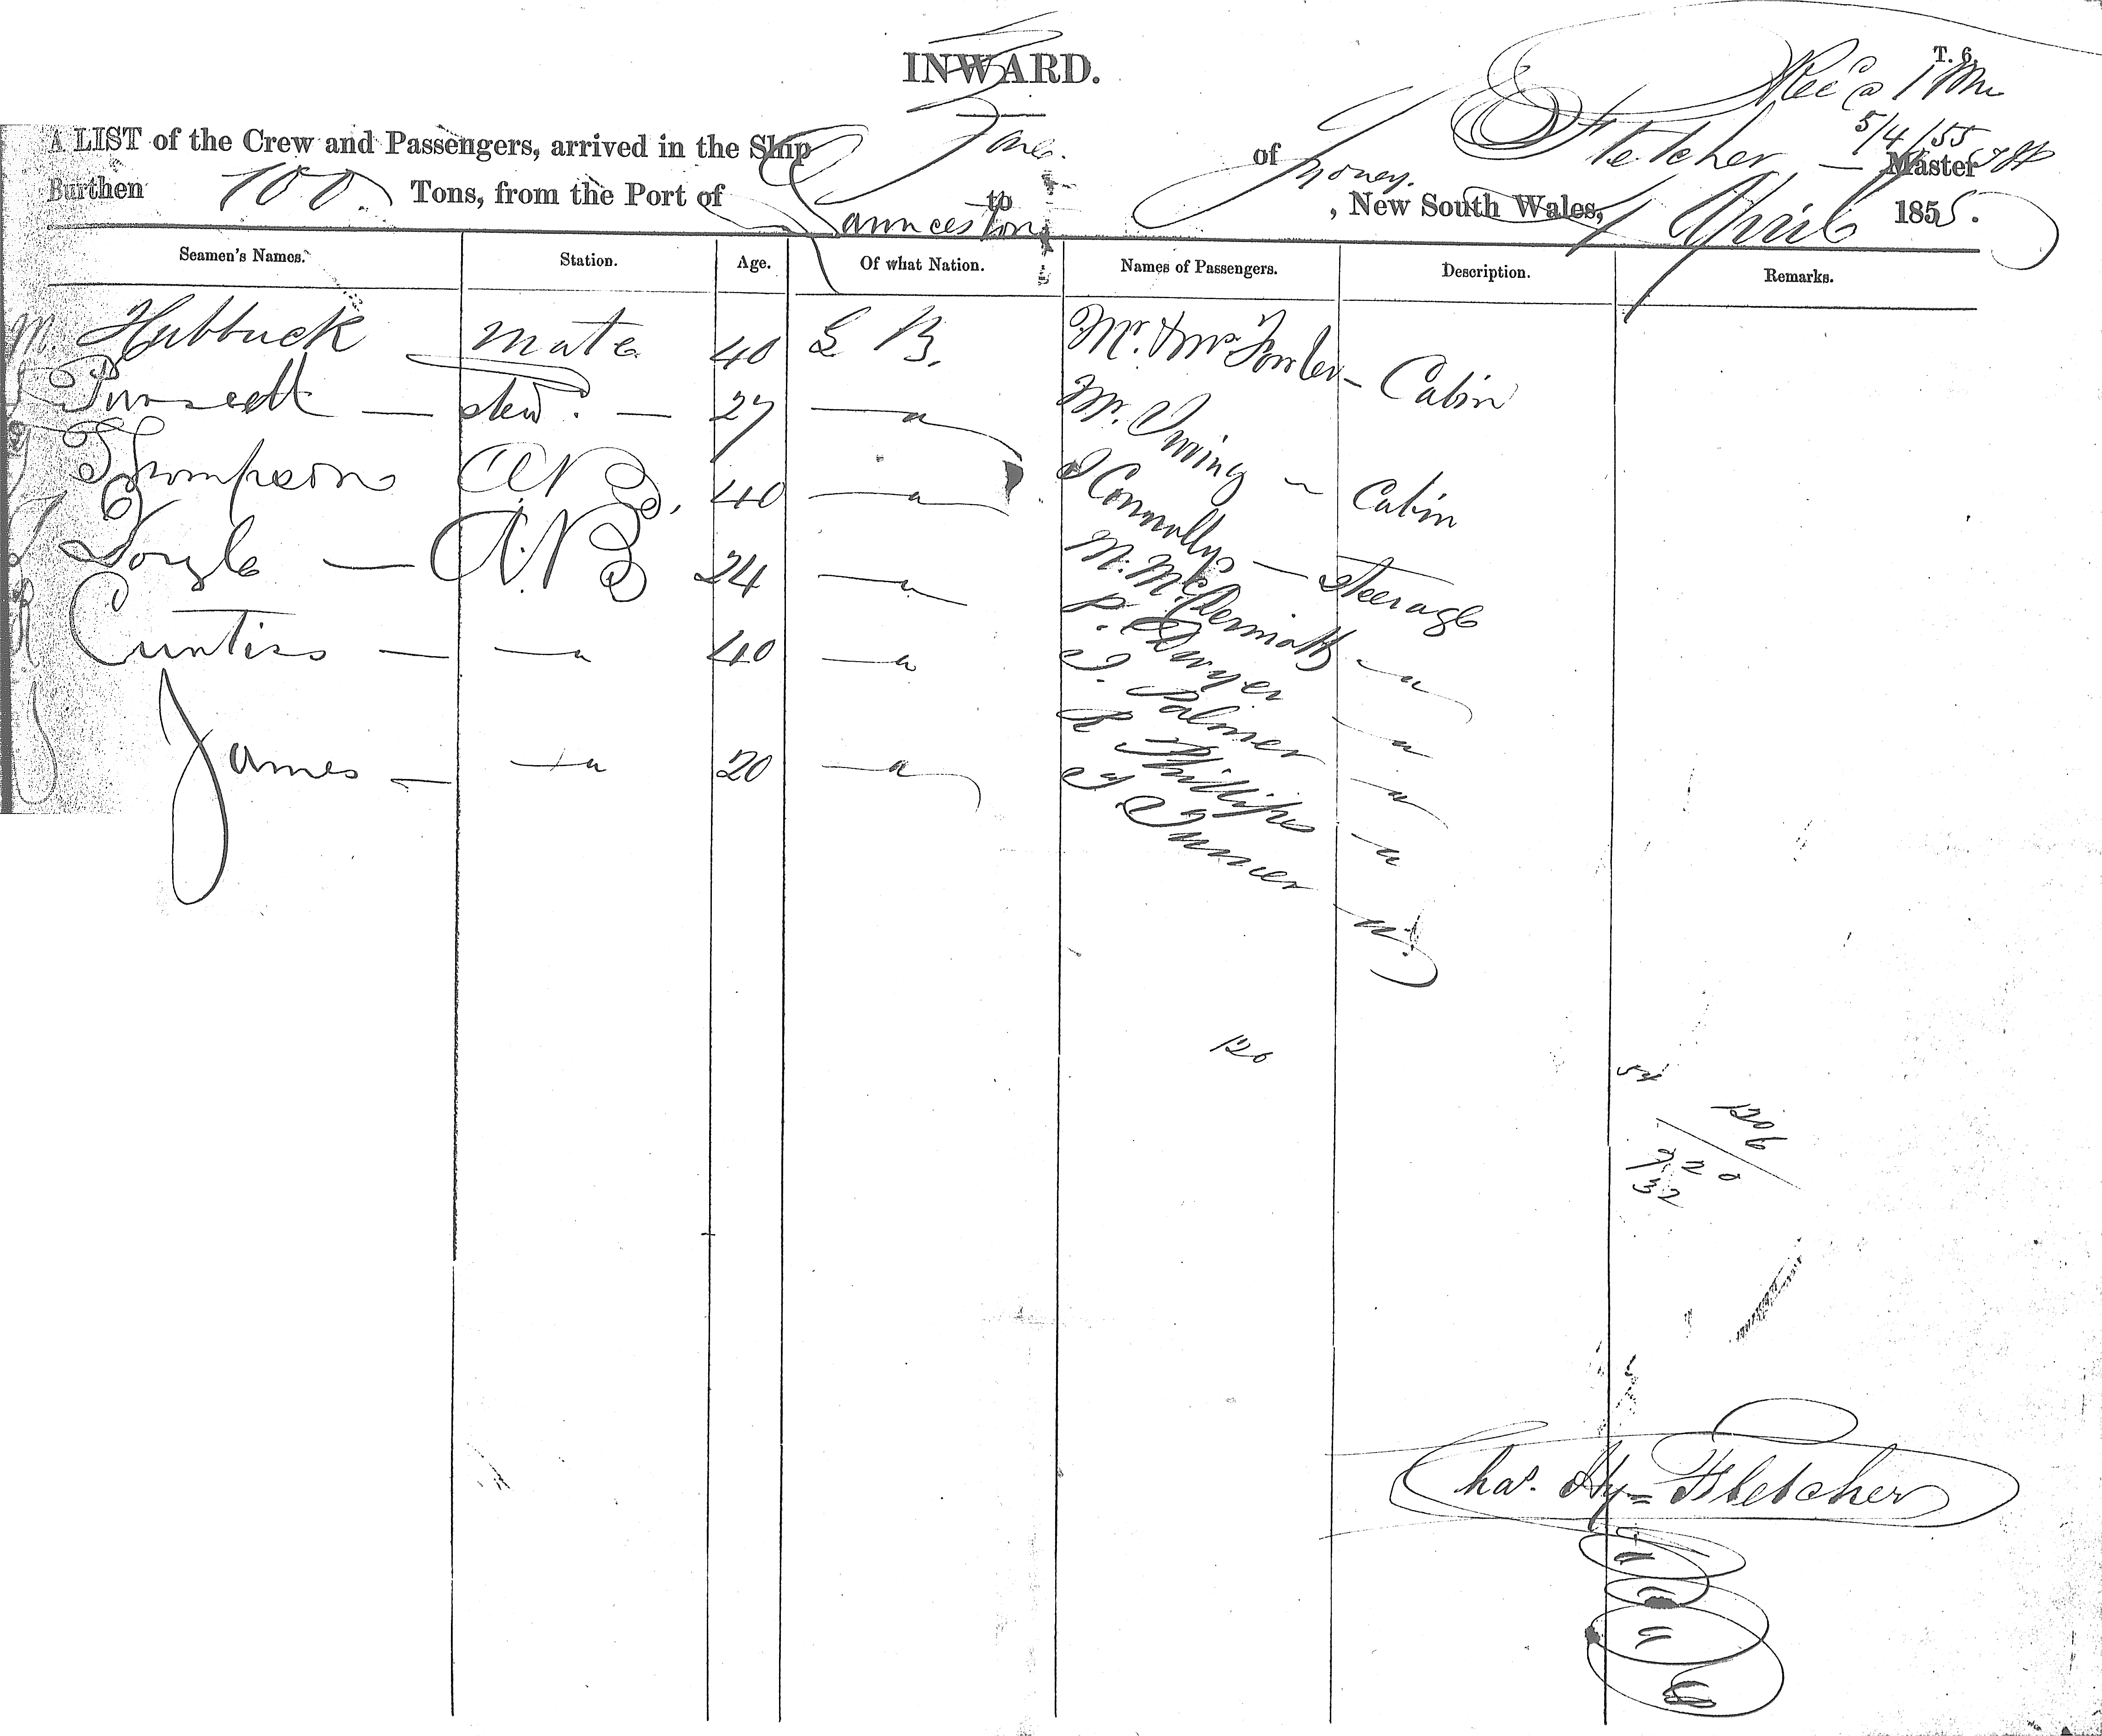 INWARD.
T. 6.
Rec'd 1 PM
5/4/55
A LIST of the Crew and Passengers, arrived in the Ship of Fletcher — Master
Burthen 100 Tons, from the Port of Launceston to Sydney, New South Wales, April 1855.
Seamen's Names. Station. Age. Of what Nation. Names of Passengers. Description. Remarks.
M. Hubbuck Mate 40 G B. Mr. & Mrs Fowler - Cabin
— stewd. — 27 — " Mr. Irving ~ Cabin
Thompson A.B. 40 — " J Connolly — Steerage
Doyle — A.B 24 — " M. McDermott — "
Curtiss — — " 40 — " P. Dwyer — "
James — — " 20 — " J. Palmer — "
R Phillips — "
J Turner — "
120
1206
920
32
Chas. Hy= Fletcher